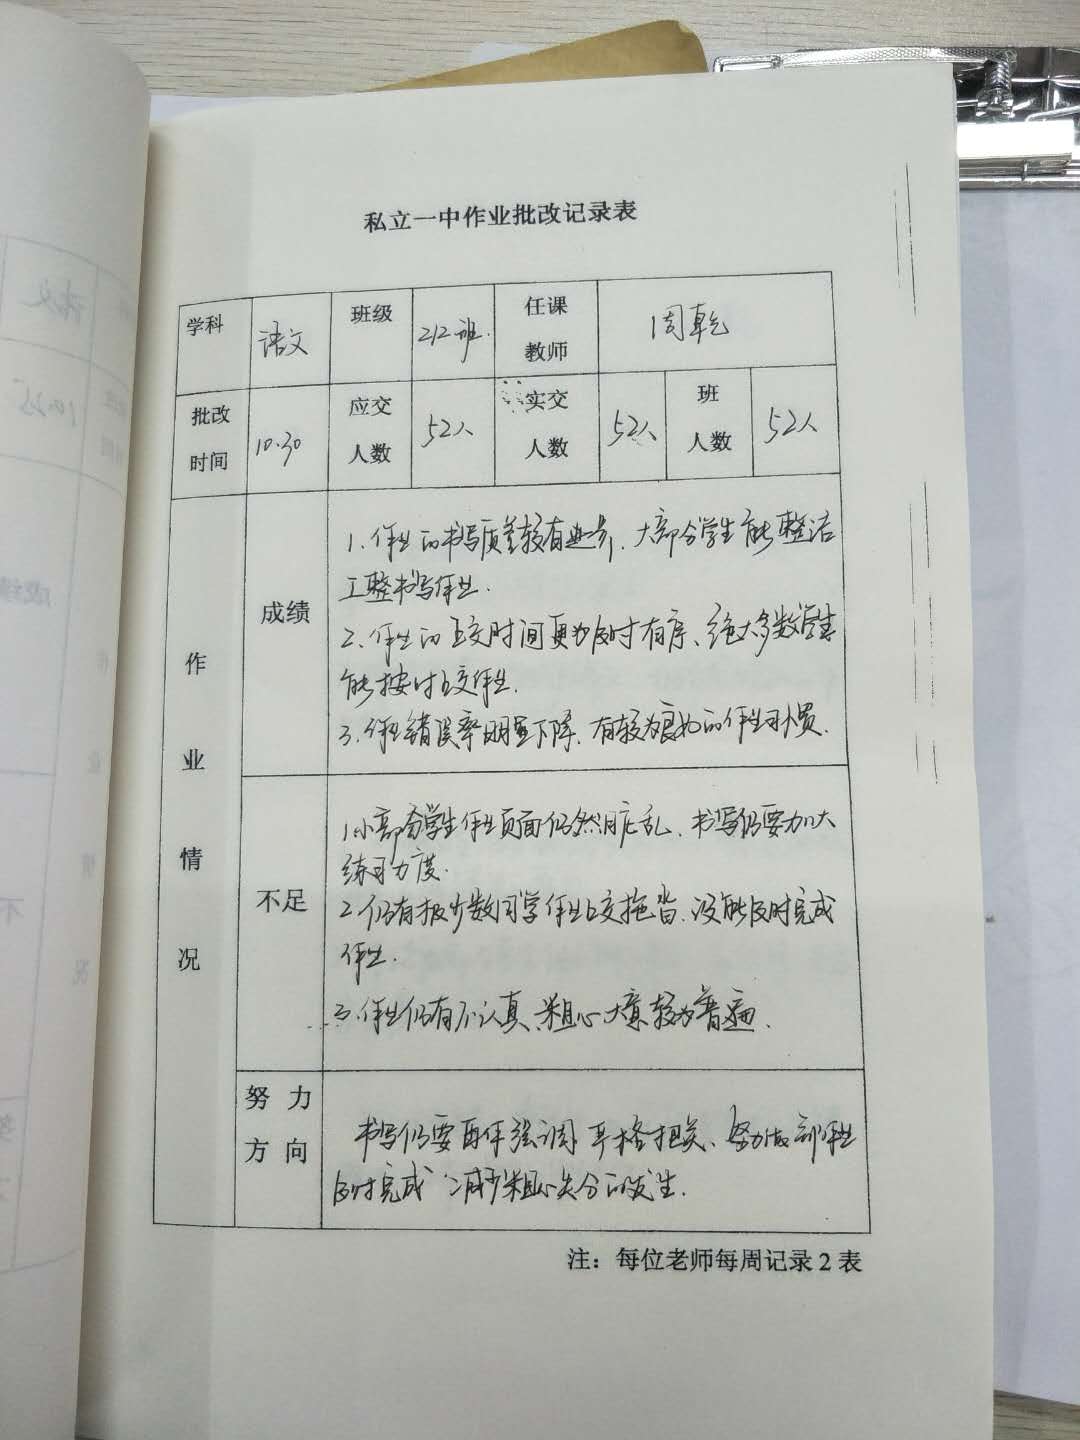 私立一中作业批改记录表
学科 语文 班级 212班. 任课教师 周乾
批改时间 10.30 应交人数 52人 实交人数 52人 班人数 52人
作业情况
成绩
1.作业的书写质量较有进步,大部分学生能整洁
工整书写作业.
2.作业的上交时间更为及时有序、绝大多数学生
能按时上交作业.
3.作业错误率明显下降,有较为良好的作业习惯.
不足
1.小部分学生作业页面仍然脏乱,书写仍要加大
练习力度.
2.仍有极少数同学作业上交拖沓.没能及时完成
作业.
3.作业仍有不认真、粗心大意较为普遍.
努力方向
书写仍要再作强调 严格把关、努力做到作业
及时完成 减少粗心失分的发生.
注：每位老师每周记录2表
语文
10.25
成绩